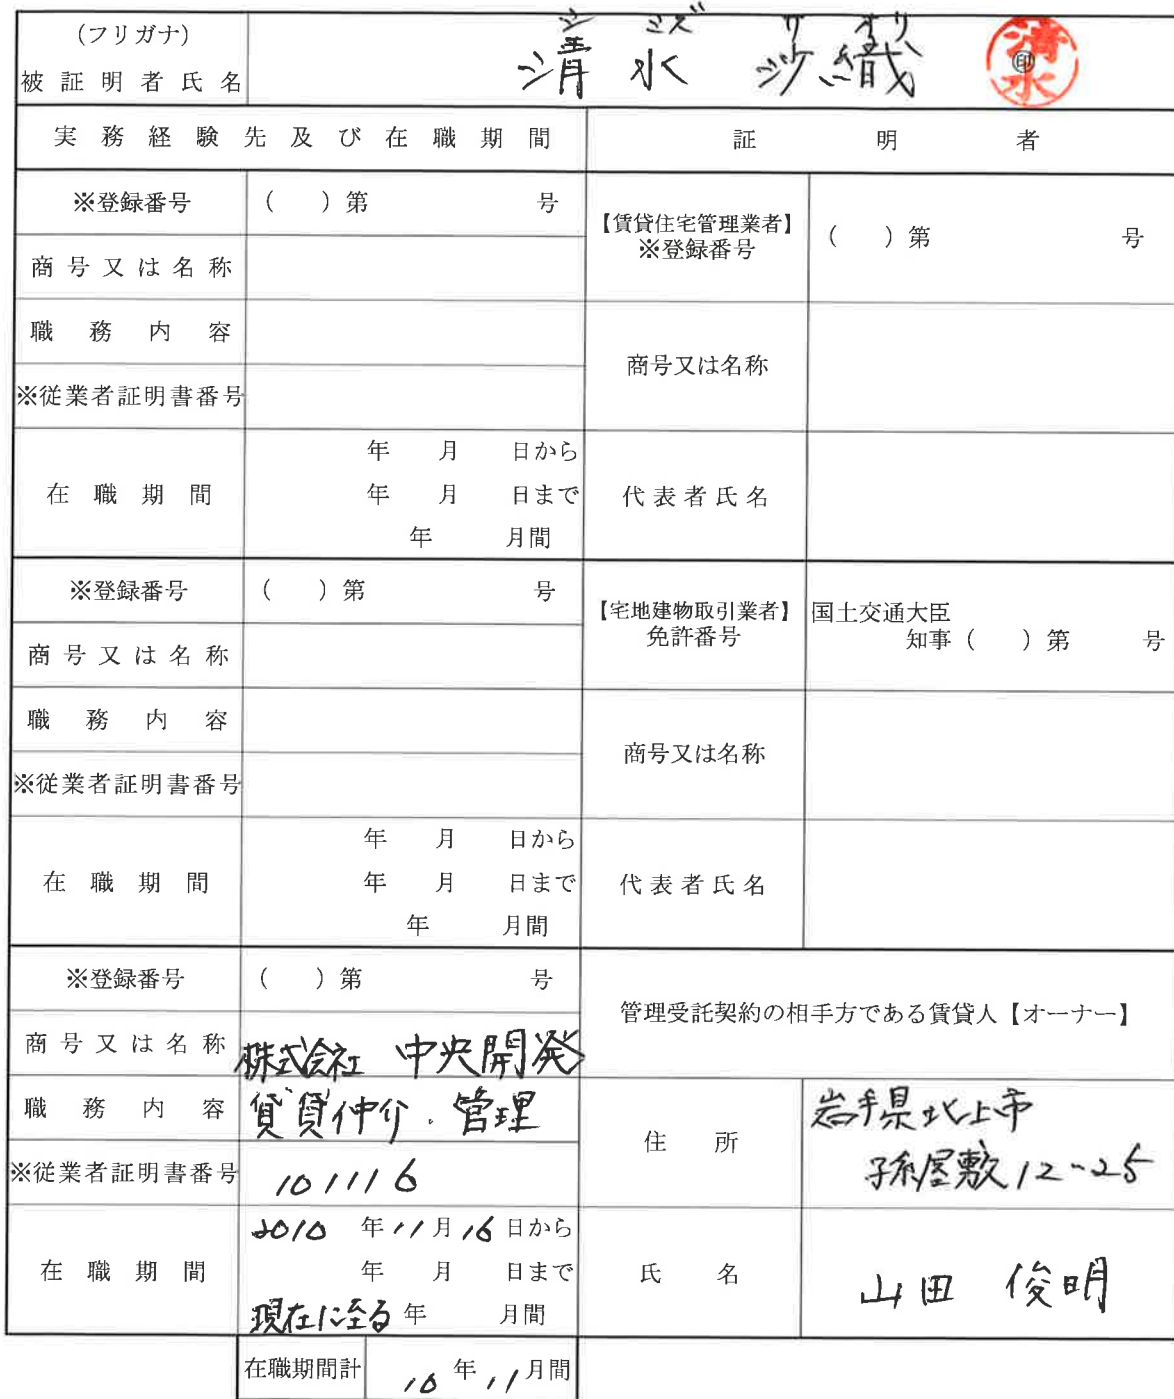 (フリガナ) シ ミズ サ オリ
被証明者氏名 清水 沙織 ㊞ 清水
実務経験先及び在職期間 証明者
※登録番号 ( )第 号
【賃貸住宅管理業者】
※登録番号 ( )第 号
商号又は名称
職務内容
商号又は名称
※従業者証明書番号
在職期間 年 月 日から
年 月 日まで
年 月間
代表者氏名
※登録番号 ( )第 号
【宅地建物取引業者】
免許番号
国土交通大臣
知事( )第 号
商号又は名称
職務内容
商号又は名称
※従業者証明書番号
在職期間 年 月 日から
年 月 日まで
年 月間
代表者氏名
※登録番号 ( )第 号
管理受託契約の相手方である賃貸人【オーナー】
商号又は名称 株式会社 中央開発
職務内容 賃貸仲介・管理
※従業者証明書番号 101116
住所 岩手県北上市
孫屋敷12-25
在職期間 2010年11月16日から
年 月 日まで
現在に至る 年 月間
氏名 山田 俊明
在職期間計 10年11月間